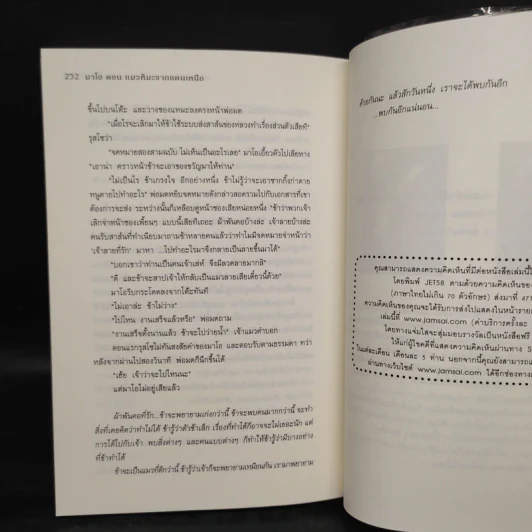 252 มาโอ ตอน แมวหิมะจากแดนเหนือ
ขึ้นไปบนโต๊ะ และวางของแหมะลงตรงหน้าพ่อมด
"เมื่อไรจะเลิกมาให้ข้าใช้ระบบส่งสาส์นของหลวงทำเรื่องส่วนตัวเสียที"
รุสโซว่า
"จดหมายสองสามฉบับ ไม่เห็นเป็นอะไรเลย" มาโอเอี้ยวตัวไปเลียหาง
"เอาน่า คราวหน้าข้าจะเอาของขวัญมาให้ท่าน"
"ไม่เป็นไร ข้าเกรงใจ อีกอย่างหนึ่ง ข้าไม่รู้ว่าจะเอาซากกิ้งก่าตาย
หนูตายไปทำอะไร" พ่อมดหยิบจดหมายดังกล่าวสอดรวมไปกับเอกสารที่เขา
ต้องการจะส่ง ระหว่างนั้นก็เหลือบดูหน้าซองเสียหน่อยหนึ่ง "ข้าว่าพวกเจ้า
เลิกจ่าหน้าซองเพี้ยนๆ แบบนี้เสียทีเถอะ ผ้าพันคอบ้างล่ะ เจ้าลายบ้างล่ะ
คนรับสาส์นที่ทำเนียบมาถามข้าหลายคนแล้วว่าทำไมมีจดหมายจ่าหน้าว่า
'เจ้าลายที่รัก' มาหา ...ไปทำอะไรมาจึงกลายเป็นลายขึ้นมาได้"
"บอกเขาว่าท่านเป็นคนเจ้าเล่ห์ จึงมีลวดลายมากสิ"
"ดี และข้าจะสาปเจ้าให้กลับเป็นแมวลายเสียเดี๋ยวนี้ด้วย"
มาโอรีบกระโดดลงจากโต๊ะทันที
"ไม่เอาล่ะ ข้าไม่ว่าง"
"ไปไหน งานเสร็จแล้วหรือ" พ่อมดถาม
"งานเสร็จตั้งนานแล้ว ข้าจะไปว่ายน้ำ" เจ้าแมวดำบอก
ตอนแรกรุสโซไม่ทันสงสัยคำของมาโอ และตอบรับตามธรรมดา ทว่า
หลังจากผ่านไปสองวินาที พ่อมดก็นึกขึ้นได้
"เฮ้ย เจ้าว่าจะไปไหนนะ"
แต่มาโอไม่อยู่เสียแล้ว
ผ้าพันคอที่รัก... ข้าจะพยายามเก่งกว่านี้ ข้าจะพบคนมากกว่านี้ จะทำ
สิ่งที่เคยคิดว่าทำไม่ได้ ข้ารู้ว่าตัวข้าเล็ก เรื่องที่ทำได้ก็อาจจะไม่เยอะนัก แต่
การได้ไปกับเจ้า พบสิ่งต่างๆ และคนแบบต่างๆ ก็ทำให้ข้ารู้ว่ามีบางอย่าง
ที่ข้าทำได้
ข้าจะเป็นแมวที่ดีกว่านี้ ข้ารู้ว่าเจ้าก็จะพยายามเหมือนกัน เรามาพยายาม
ด้วยกันนะ แล้วสักวันหนึ่ง เราจะได้พบกันอีก
...พบกันอีกแน่นอน...
คุณสามารถแสดงความคิดเห็นที่มีต่อหนังสือเล่มนี้
โดยพิมพ์ JET58 ตามด้วยความคิดเห็นของ
(ภาษาไทยไม่เกิน 70 ตัวอักษร) ส่งมาที่ 47
ความคิดเห็นของคุณจะได้รับการส่งไปแสดงในหน้าราย
เล่มนี้ที่ www.jamsai.com (ค่าบริการครั้งละ
โดยทางแจ่มใสจะสุ่มมอบรางวัลเป็นหนังสือฟรี
ให้แก่ผู้โชคดีที่แสดงความคิดเห็นผ่านทาง S
ในแต่ละเดือน เดือนละ 5 ท่าน นอกจากนี้คุณยังสามารถแ
ผ่านทางเว็บไซต์ www.jamsai.com ได้อีกช่องทาง